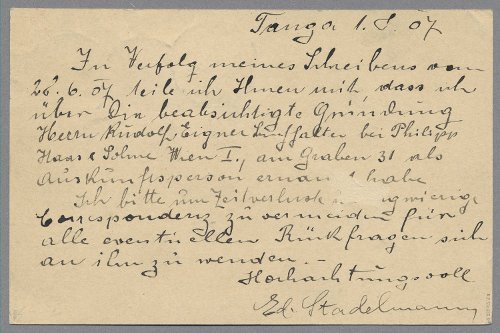 Tanga 1. 8. 07
In Verfolg meines Schreibens vom
26. 6. 07 teile ich Ihnen mit, dass ich
über die beabsichtigte Gründung
Herrn Rudolf Eigner Buchhalter bei Philipp
Haas & Söhne Wien I., am Graben 31 als
Auskunftsperson ernannt habe
Ich bitte um Zeitverluste
Correspondenz zu vermeiden für
alle eventuellen Rückfragen sich
an ihn zu wenden. –
Hochachtungsvoll
Ed. Stadelmann